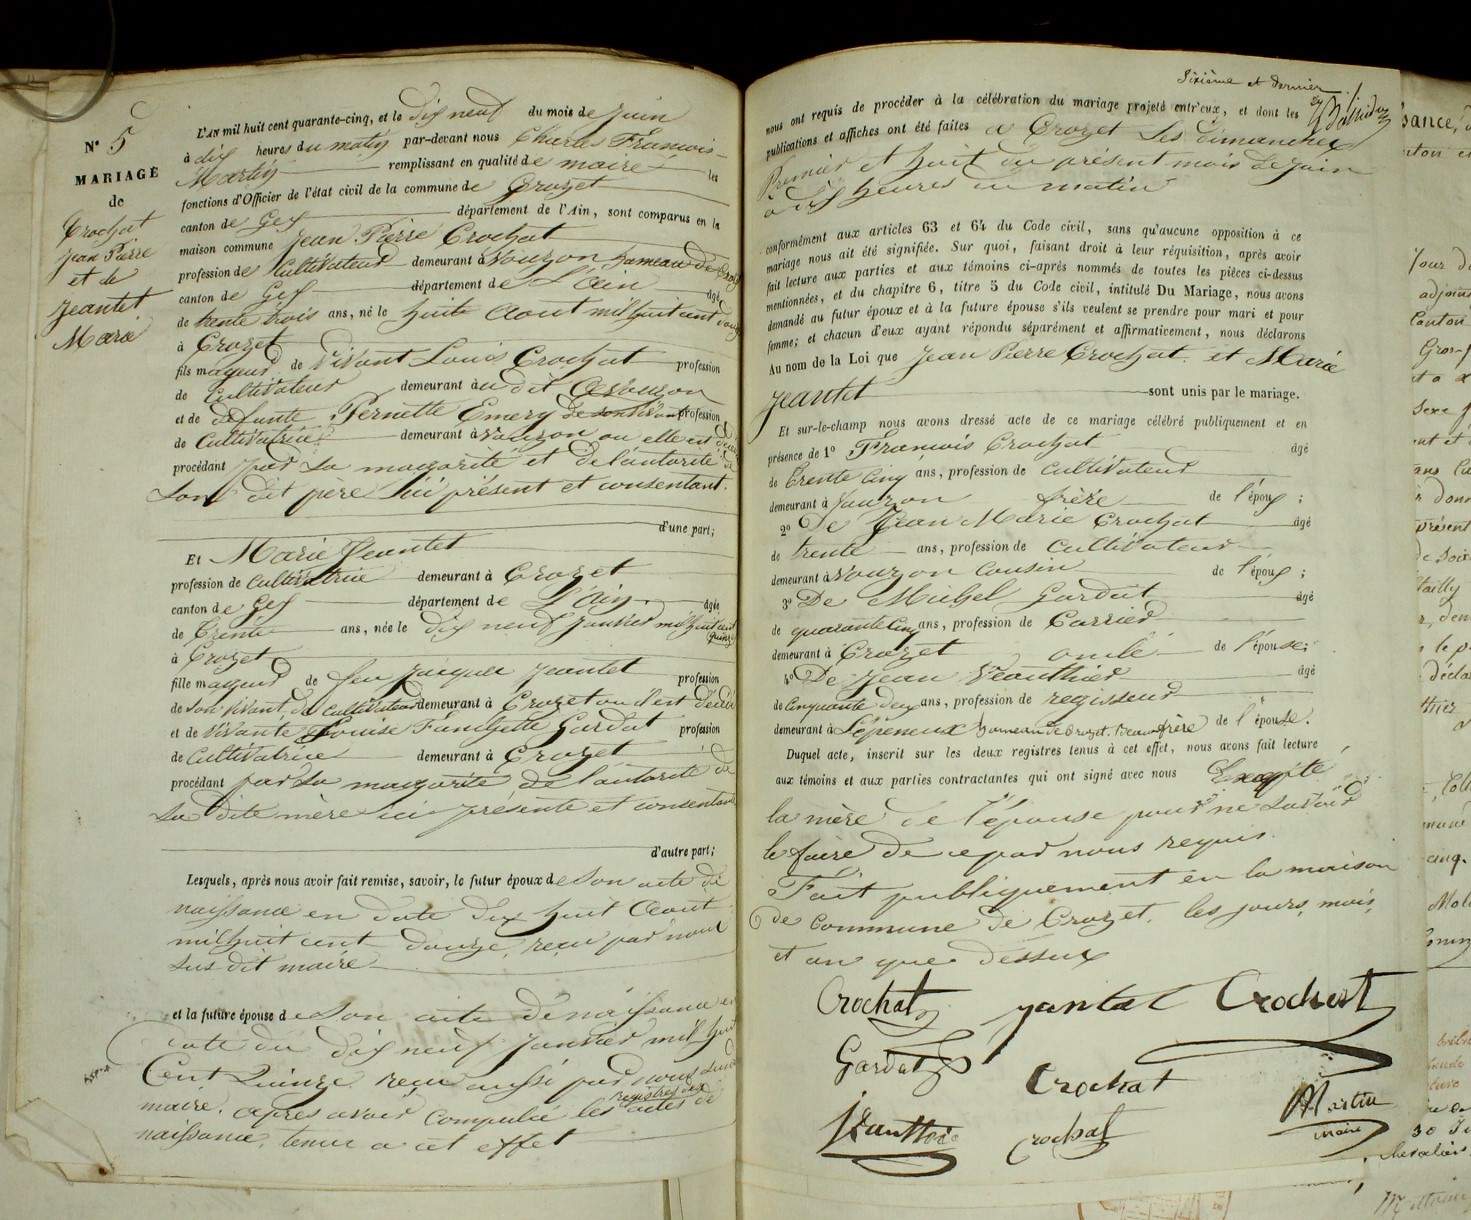 N° 5
MARIAGE
de
Crochat
Jean Pierre
et de
Jeantet
Marie
L'AN mil huit cent quarante-cinq, et le dix neuf du mois de Juin
à dix heures du matin par-devant nous Charles François
Martin remplissant en qualité de maire les
fonctions d'Officier de l'état civil de la commune de Crozet
canton de Gex département de l'Ain, sont comparus en la
maison commune Jean Pierre Crochat
profession de Cultivateur demeurant à Vouzon hameau de Crozet
canton de Gex département de L'Ain âgé
de trente trois ans, né le huite Aout mil huit cent douze
à Crozet
fils majeur de vivant Louis Crochat profession
de Cultivateur demeurant au dit Vouzon
et de defunte Pernette Emery de son vivant profession
de Cultivatrice demeurant à Vouzon ou elle est
procédant par sa majorité et de l'autorité de
son dit père ici présent et consentant.
d'une part;
Et Marie Jeantet
profession de Cultivatrice demeurant à Crozet
canton de Gex département de L'Ain âgée
de Trente ans, née le dix neuf Janvier mil huit cent
quinze
à Crozet
fille majeur de feu Jacques Jeantet profession
de son vivant de Cultivateur demeurant à Crozet ou il est décédé
et de vivante Louise Gardat profession
de Cultivatrice demeurant à Crozet
procédant par sa majorité de l'autorité de
sa dite mère ici présente et consentante
d'autre part;
Lesquels, après nous avoir fait remise, savoir, le futur époux de son acte de
naissance en date dix huit Aout
mil huit cent douze, reçu par nous
sus dit maire
et la future épouse de son acte de naissance en
date du dix neuf Janvier mil huit
Cent Quinze reçu aussi par nous sus dit
maire. après avoir Compulsé les registres des actes de
naissance tenus a cet effet
Sixième et dernier
nous ont requis de procéder à la célébration du mariage projeté entr'eux, et dont les
publications et affiches ont été faites a Crozet les dimanches
Premier et huit du présent mois de Juin
à dix heures du matin
conformément aux articles 63 et 64 du Code civil, sans qu'aucune opposition à ce
mariage nous ait été signifiée. Sur quoi, faisant droit à leur réquisition, après avoir
fait lecture aux parties et aux témoins ci-après nommés de toutes les pièces ci-dessus
mentionnées, et du chapitre 6, titre 5 du Code civil, intitulé Du Mariage, nous avons
demandé au futur époux et à la future épouse s'ils veulent se prendre pour mari et pour
femme; et chacun d'eux ayant répondu séparément et affirmativement, nous déclarons
Au nom de la Loi que Jean Pierre Crochat et Marie
Jeantet sont unis par le mariage.
Et sur-le-champ nous avons dressé acte de ce mariage célébré publiquement et en
présence de 1° François Crochat âgé
de Trente Cinq ans, profession de Cultivateur
demeurant à Vouzon frère de l'époux;
2° De Jean Marie Crochat âgé
de trente ans, profession de Cultivateur
demeurant à Vouzon Cousin de l'époux;
3° De Michel Gardat âgé
de quarante Cinq ans, profession de Carrier
demeurant à Crozet oncle de l'épouse;
4° De Jean Vauthier âgé
de Cinquante deux ans, profession de regisseur
demeurant à Lépeneux hameau de Crozet Beaufrère de l'épouse.
Duquel acte, inscrit sur les deux registres tenus à cet effet, nous avons fait lecture
aux témoins et aux parties contractantes qui ont signé avec nous Excepté
la mère de l'épouse pour ne savoir
le faire de ce par nous requis.
Fait publiquement en la maison
de Commune de Crozet, les jours, mois,
et an que dessus
Crochat Jantet Crochat
Gardat Crochat
JVauthier Crochat Martin
maire